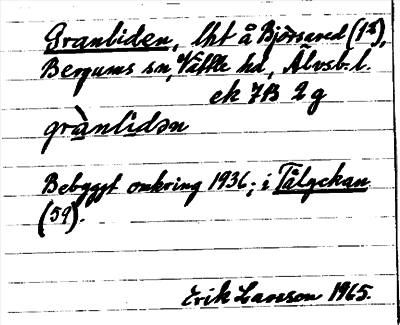 Granliden, lht å Björsared (1²),
Bergums sn, Vättle hd, Älvsb. l.
ek 7B 2 g
grànlidən
Bebyggt omkring 1936; i Tålyckan
(59).
Erik Larsson 1965.